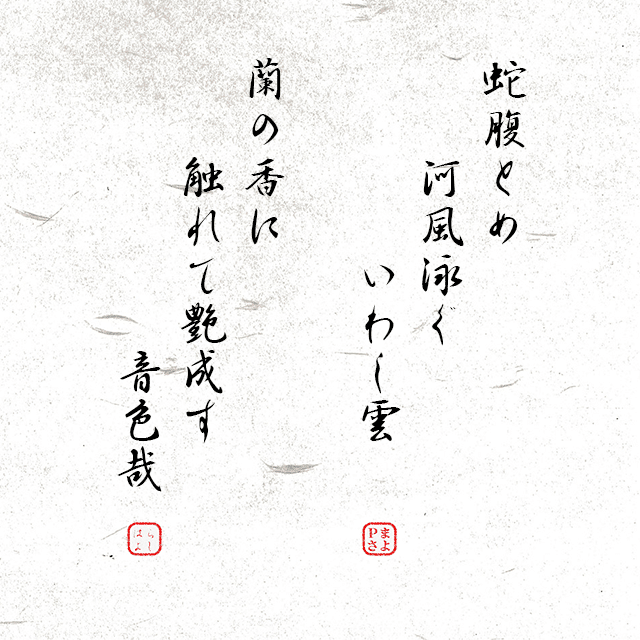 蛇腹とめ
河風泳ぐ
いわし雲
まよ
Pさ
蘭の香に
触れて艶成す
音色哉
らし
はよ